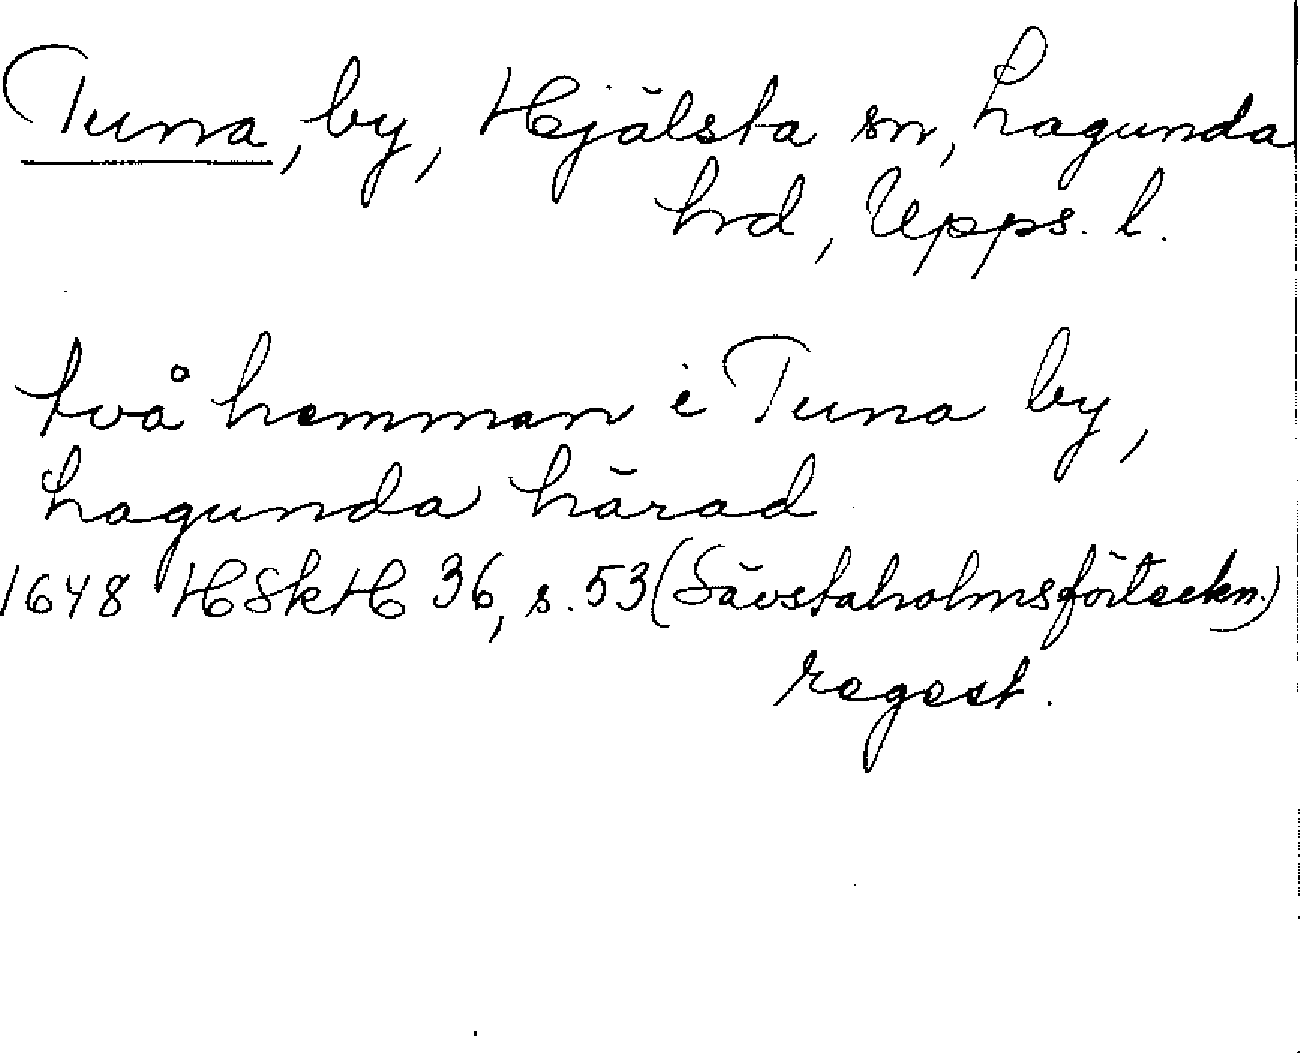 Tuna, by, Hjälsta sn, Lagunda
hrd, Upps. l.
två hemman i Tuna by,
Lagunda härad
1648 HSkH 36, s. 53 (Sävstaholmsförteckn.)
regest.